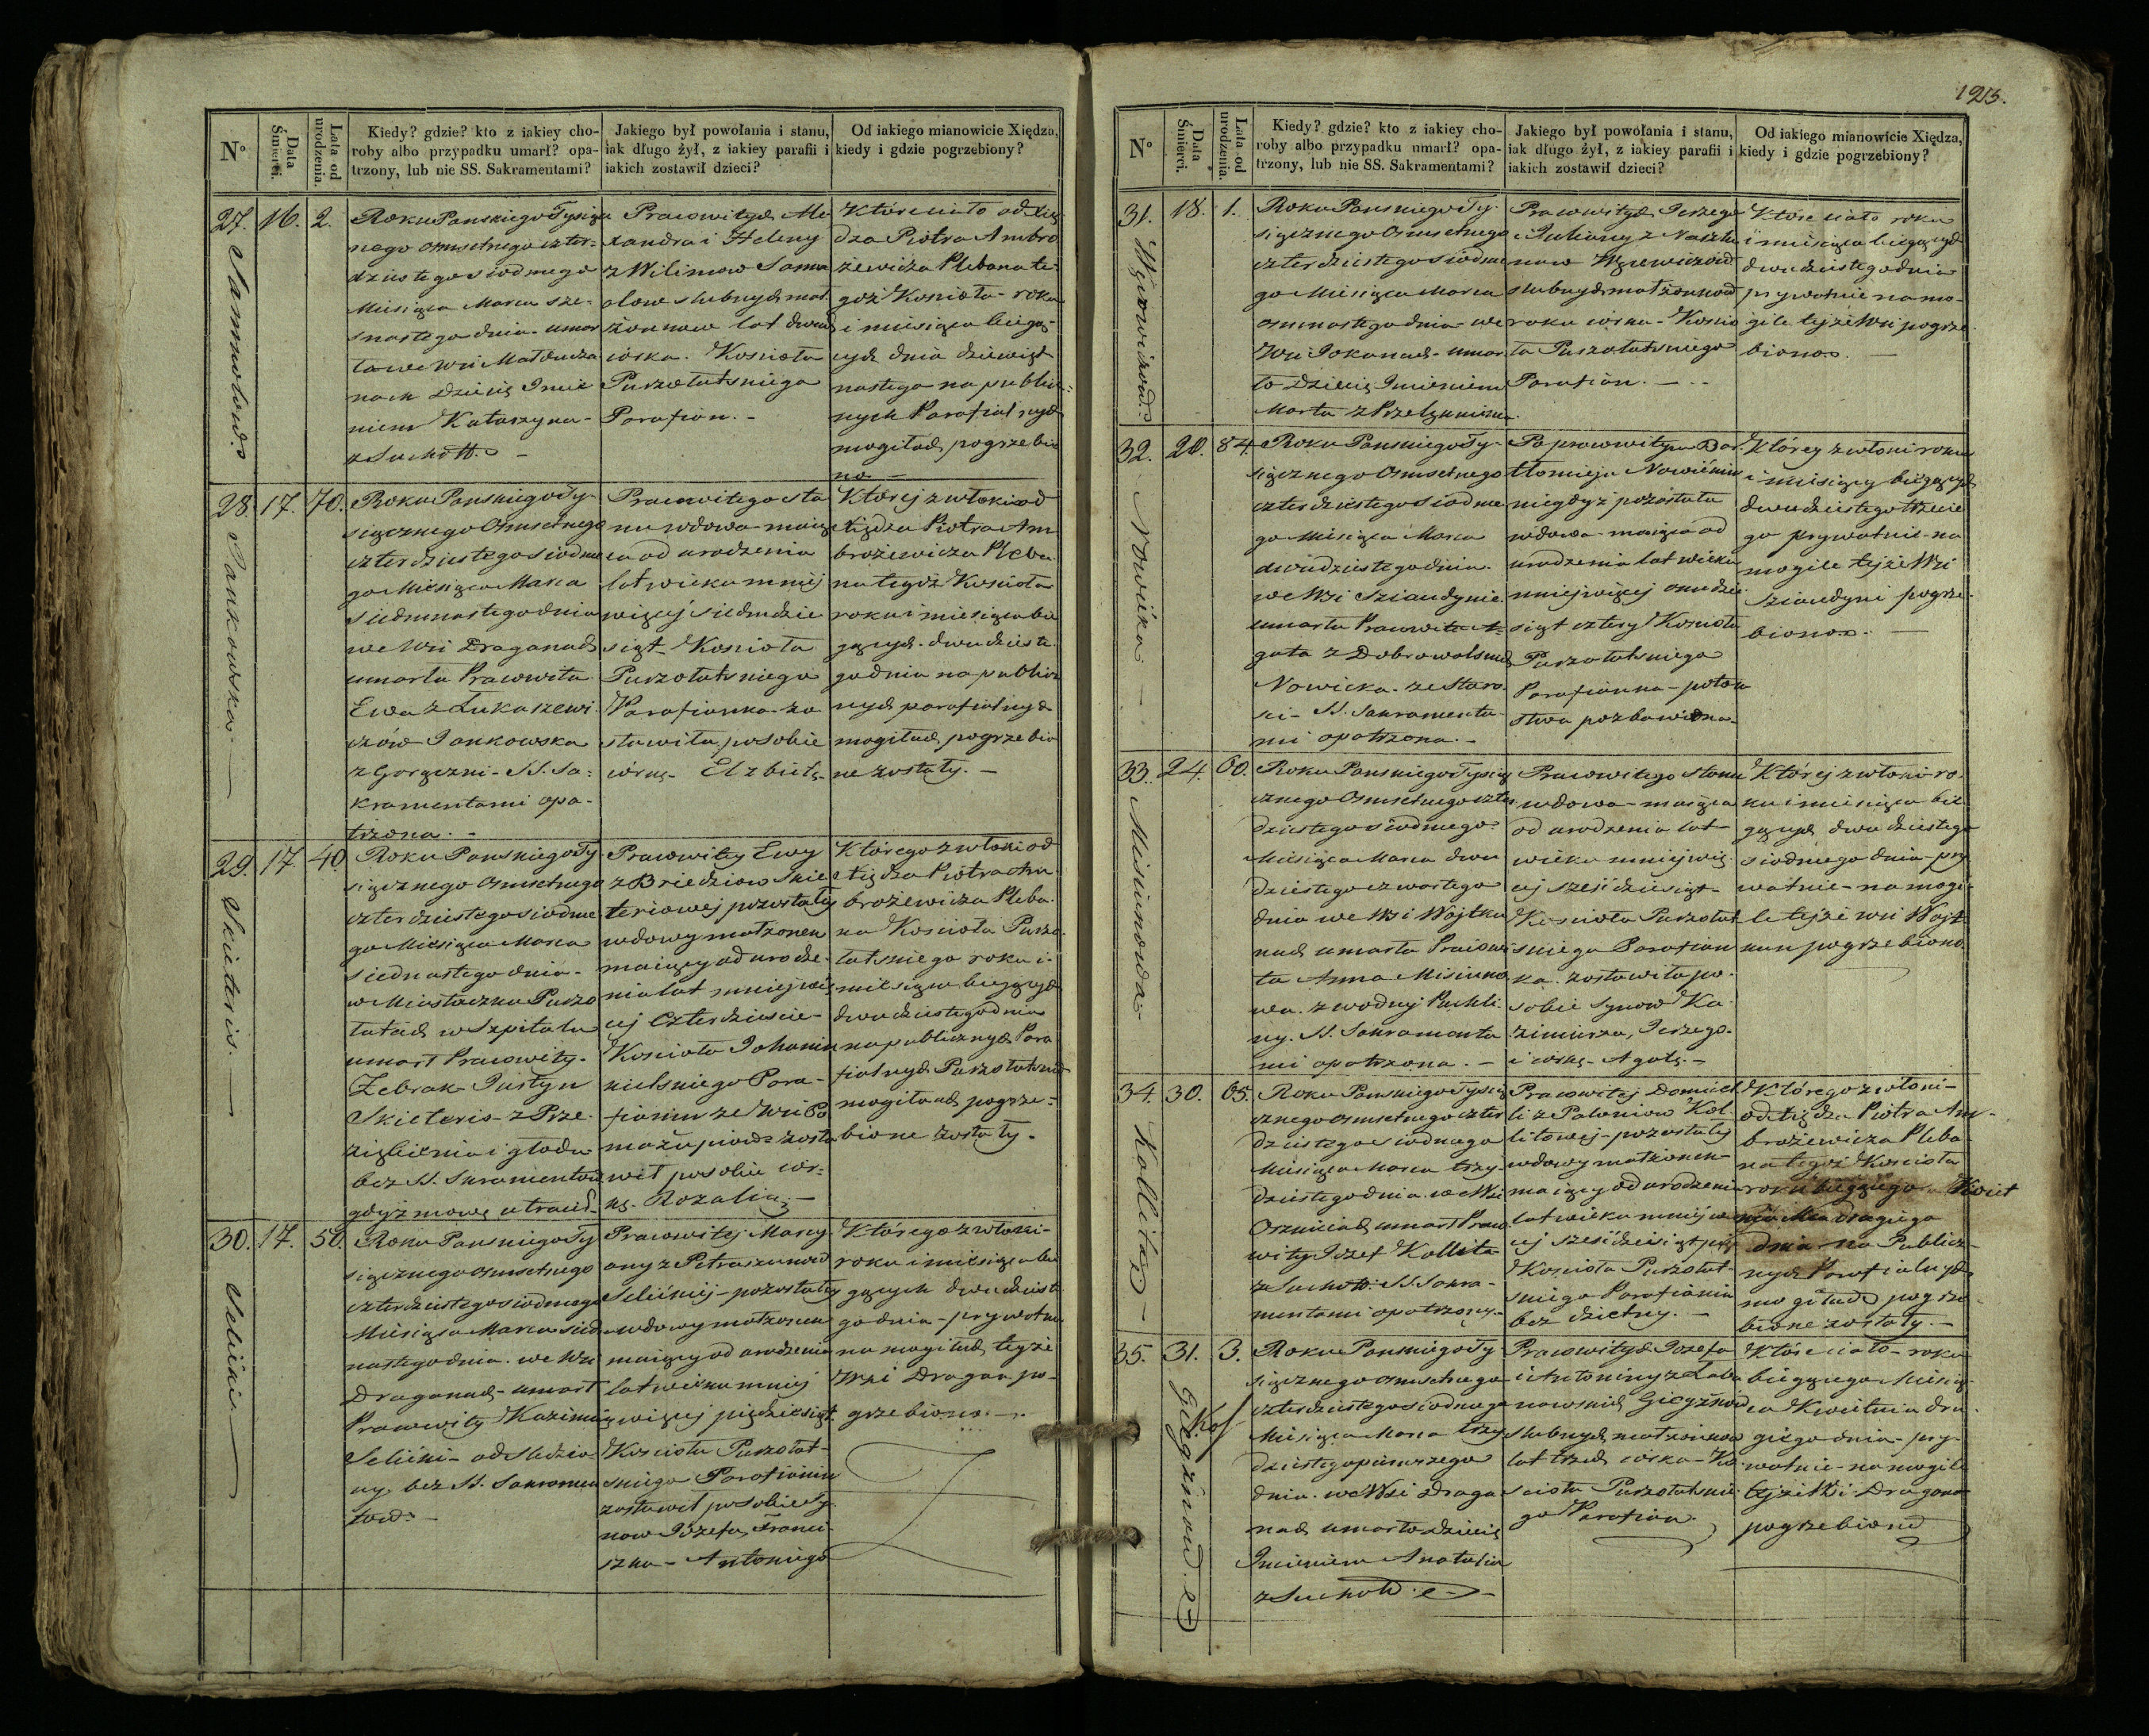 1215.
N°
Data Śmierci.
Lata od urodzenia.
Kiedy? gdzie? kto z iakiey cho-
roby albo przypadku umarł? opa-
trzony, lub nie SS. Sakramentami?
Jakiego był powołania i stanu,
iak długo żył, z iakiey parafii i
iakich zostawił dzieci?
Od iakiego mianowicie Xiędza,
kiedy i gdzie pogrzebiony?
27. 16. 2.
Roku Panskiego Tysią
cznego osmsetnego czter-
dziestego siodmego
Miesiąca Marca sze-
snastego dnia umar
ło we Wsi
nach Dziecię Imie
niem Katarzyna
z Suchott.
Pracowitych Ale
xandra i Heleny
z Wilimow
slubnych mał
żonkow lat dwuch
córka. Kościoła
Purzołatskiego
Parafian.
Które ciało od Xię
dza Piotra Ambro
żewicza Plebana te
goż Kościoła roku
i miesiąca biegą-
cych dnia dziewięt
nastego na publicz-
nych Parafialnych
mogiłach pogrzebio
no
28. 17. 70.
Jankowska
Roku Panskiego Ty-
siącznego Osmsetnego
czterdziestego siodme
go Miesiąca Marca
siedmnastego dnia
we Wsi Draganach
umarła Pracowita
Ewa z Łukaszewi
czów Jankowska
z Gorączki SS. Sa-
kramentami opa-
trzona.
Pracowitego sta
nu wdowa maią
ca od urodzenia
lat wieku mniej
więcej siedmdzie
siąt Kościoła
Purzołatskiego
Parafianka zo
stawiła po sobie
córkę Elzbietę
Której zwłoki od
Xiędza Piotra Am
brożewicza Pleba
na tegoż Kościoła
roku i miesiąca bie
gących dwudzieste
go dnia na publicz
nych parafialnych
mogiłach pogrzebio
ne zostały.
29. 17 40.
Skieteris.
Roku Panskiego Ty
siącznego Osmsetnego
czterdziestego siodme
go Miesiąca Marca
siedmnastego dnia
w Miasteczku Purzo
łatach w Szpitalu
umarł Pracowity
Żebrak Justyn
Skieteris z Prze-
ziębienia i głodu
bez SS. Sakramentow
gdyż mowę utracił
Pracowitey Ewy
Skie
teriowej pozostałej
wdowy małżonek
maiący od urodze-
nia lat mniej wię
cej Czterdzieście
Kościoła Johanisz
kielskiego Para-
fianin ze Wsi Po
zosta
wił po sobie cór-
kę Rozalią
Którego zwłoki od
Xiędza Piotra Am
brożewicza Pleba
na Kościoła Purzo
łatskiego roku i
miesiąca biegących
dwudziestego dnia
na publicznych Para
fialnych Purzołatskich
mogiłach pogrze-
bione zostały.
30. 17. 50.
Roku Panskiego Ty
siącznego osmsetnego
czterdziestego siodmego
Miesiąca Marca siedm
nastego dnia we Wsi
Draganach umarł
Pracowity Kazimierz
bez SS. Sakramen
tow.
Pracowitej Mary
anny z Petraszunow
pozostałej
wdowy małżonek
maiący od urodzenia
lat wieku mniej
więcej pięćdziesiąt
Kościoła Purzołat-
skiego Parafianin
zostawił po sobie Sy-
now Józefa, Franci
szka Antoniego
Którego zwłoki
roku i miesiąca bie
gących dwudzieste
go dnia prywatnie
na mogiłach tejże
Wsi Dragan po-
grzebiono.
31. 18. 1.
Roku Panskiego Ty-
siącznego Osmsetnego
czterdziestego siodme
go Miesiąca Marca
osmnastego dnia we
Wsi Jokanach umar
ło Dziecię Imieniem
Marta z Przelęknienia
Pracowitych Jerzego
i Julianny z
now
slubnych małżonkow
roku córka Kościo
ła Purzołatskiego
Parafian.
Które ciało roku
i miesiąca biegących
dwudziestego dnia
prywatnie na mo-
gile tejże Wsi pogrze
biono.
32. 20. 84.
Nowicka
Roku Panskiego Ty-
siącznego Osmsetnego
czterdziestego siodme
go Miesiąca Marca
dwudziestego dnia
we Wsi Sziaudynie
umarła Pracowita A-
gata z Dobrowolskich
Nowicka ze Staro
ści SS. Sakramenta
mi opatrzona.
Po pracowitym Bar
tłomieju Nowickim
niegdyś pozostała
wdowa maiąca od
urodzenia lat wieku
mniej więcej osmdzie
siąt cztery Kościoła
Purzołatskiego
Parafianka potom
stwa pozbawiona
Której zwłoki roku
i miesięcy biegących
dwudziestego trzecie
go prywatnie na
mogile tejże Wsi
Sziaudyni pogrze
biono.
33. 24. 60.
Misiunowa
Roku Panskiego Tysią
cznego Osmsetnego czter
dziestego siodmego
Miesiąca Marca dwu
dziestego czwartego
dnia we Wsi Wojtku
nach umarła Pracowi
ta Anna Misiuno
wa z wodnej Puchli
ny SS. Sakramenta
mi opatrzona.
Pracowitego stanu
wdowa maiąca
od urodzenia lat
wieku mniej wię
cej sześćdziesiąt
Kościoła Purzołat
skiego Parafian
ka zostawiła po
sobie synow Ka
zimierza, Jerzego
i córkę Agatę.
Której zwłoki ro-
ku i miesiąca bie
gących dwudziestego
siodmego dnia pry
watnie na mogi-
le tejże wsi Wojt
kun pogrzebiono
34. 30. 65.
Roku Panskiego Tysią
cznego Osmsetnego czter
dziestego siodmego
Miesiąca Marca trzy
dziestego dnia we Wsi
umarł Praco
wity Józef Kollita
z Suchott SS. Sakra-
mentami opatrzony.
Pracowitej Domicel
li z Paloniow Kol
litowej pozostałej
wdowy małżonek
maiący od urodzenia
lat wieku mniej wię
cej sześćdziesiąt pięć
Kościoła Purzołat-
skiego Parafianin
bezdzietny.
Którego zwłoki
od Xiędza Piotra Am-
brożewicza Pleba
na tegoż Kościoła
roku biegącego Kwiet
nia Mca drugiego
dnia na Publicz-
nych Parafialnych
mogiłach pogrze
bione zostały.
35. 31. 3.
Roku Panskiego Ty
siącznego osmsetnego
czterdziestego siodmego
Miesiąca Marca trzy
dziestego pierwszego
dnia we Wsi Draga
nach umarło dziecię
Imieniem Anatalia
z Suchott
Pracowitych Józefa
i Antoniny z
slubnych małżonkow
lat trzech córka Ko
ścioła Purzołatskie
go Parafian.
Które ciało roku
biegącego Miesią
ca Kwietnia dru
giego dnia pry-
watnie na mogile
tejże Wsi Dragana
pogrzebiono